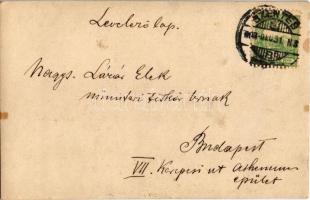 Levelezőlap.
Nagys. Lázár Elek
miniszteri titkár úrnak
Budapest
VII. Kerepesi ut Athenaeum
épület